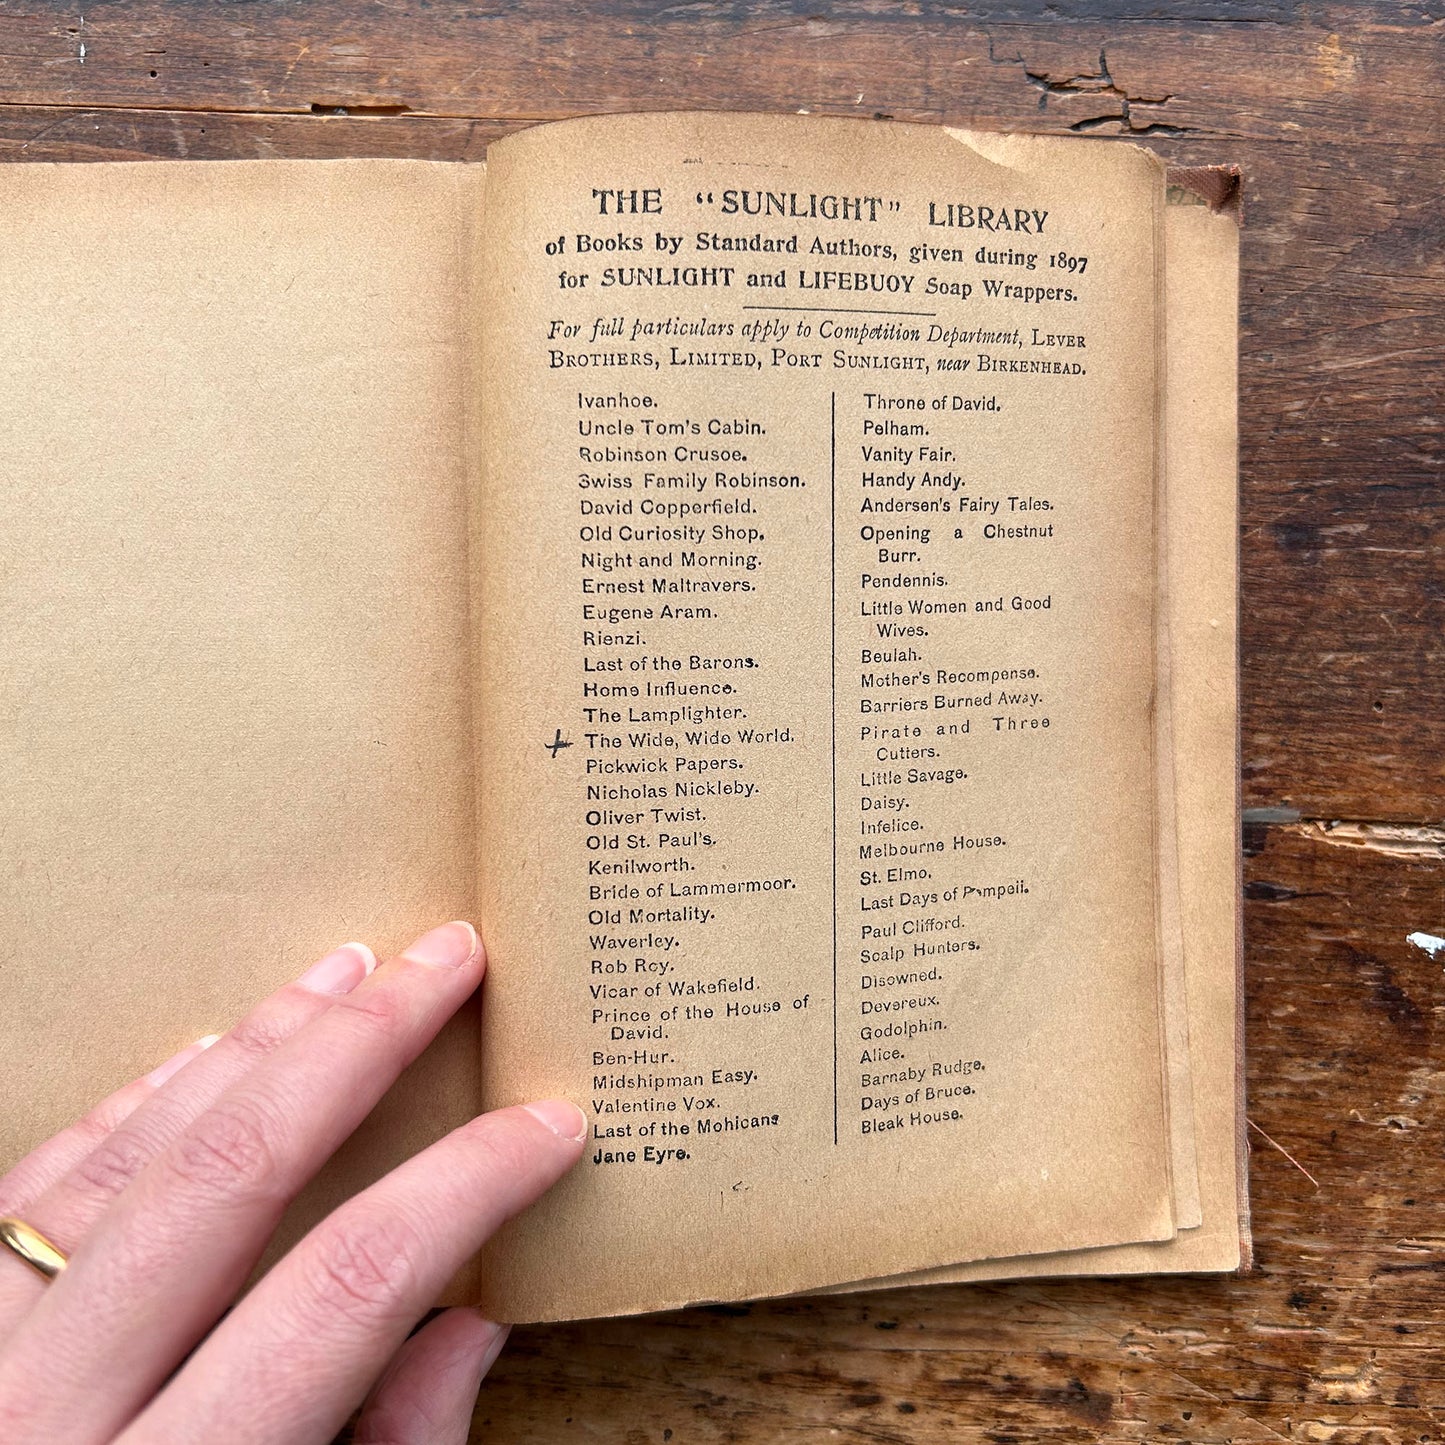 THE "SUNLIGHT" LIBRARY
of Books by Standard Authors, given during 1897
for SUNLIGHT and LIFEBUOY Soap Wrappers.
For full particulars apply to Competition Department, LEVER
BROTHERS, LIMITED, PORT SUNLIGHT, near BIRKENHEAD.
Ivanhoe.
Uncle Tom's Cabin.
Robinson Crusoe.
Swiss Family Robinson.
David Copperfield.
Old Curiosity Shop.
Night and Morning.
Ernest Maltravers.
Eugene Aram.
Rienzi.
Last of the Barons.
Home Influence.
The Lamplighter.
+ The Wide, Wide World.
Pickwick Papers.
Nicholas Nickleby.
Oliver Twist.
Old St. Paul's.
Kenilworth.
Bride of Lammermoor.
Old Mortality.
Waverley.
Rob Roy.
Vicar of Wakefield.
Prince of the House of
David.
Ben-Hur.
Midshipman Easy.
Valentine Vox.
Last of the Mohicans
Jane Eyre.
Throne of David.
Pelham.
Vanity Fair.
Handy Andy.
Andersen's Fairy Tales.
Opening a Chestnut
Burr.
Pendennis.
Little Women and Good
Wives.
Beulah.
Mother's Recompense.
Barriers Burned Away.
Pirate and Three
Cutters.
Little Savage.
Daisy.
Infelice.
Melbourne House.
St. Elmo.
Last Days of Pompeii.
Paul Clifford.
Scalp Hunters.
Disowned.
Devereux.
Godolphin.
Alice.
Barnaby Rudge.
Days of Bruce.
Bleak House.